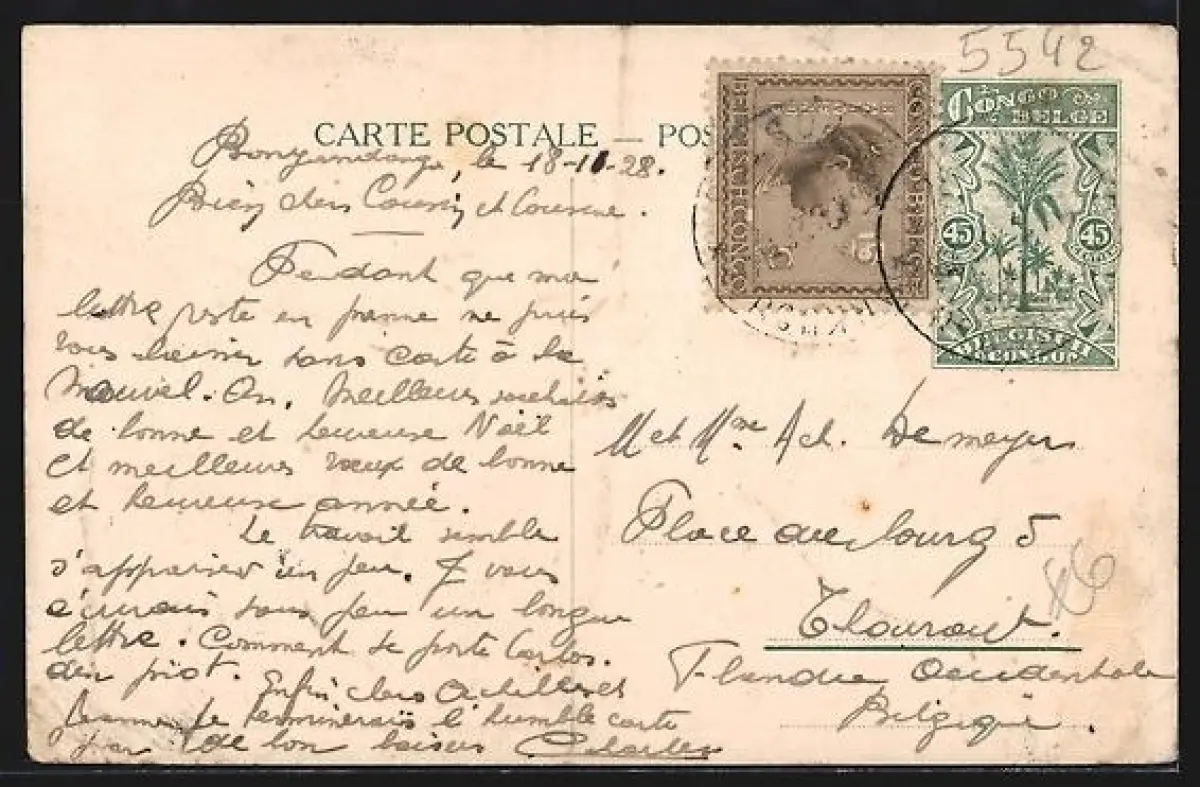 5542
CARTE POSTALE — POS
CONGO BELGE
BELGISCH CONGO
CONGO BELGE
45 45
BELGISCH CONGO
le 18-11-28.
Bien chers Cousin et Cousine.
Pendant que ma
lettre reste en panne ne puis
vous laisser sans carte à la
Nouvel. An. Meilleurs souhaits
de bonne et heureuse Noël
et meilleurs vœux de bonne
et heureuse année.
Le travail semble
s'appaiser un peu. Je vous
écrirais sous peu un longue
lettre. Comment se porte Carlos.
Enfin chers Achille et
Jeanne je terminerais l'humble carte
par de bon baisers Charles
M et Mme Ach. Demeyer
Place du bourg 5
Thourout.
Flandre Occidentale
Belgique.